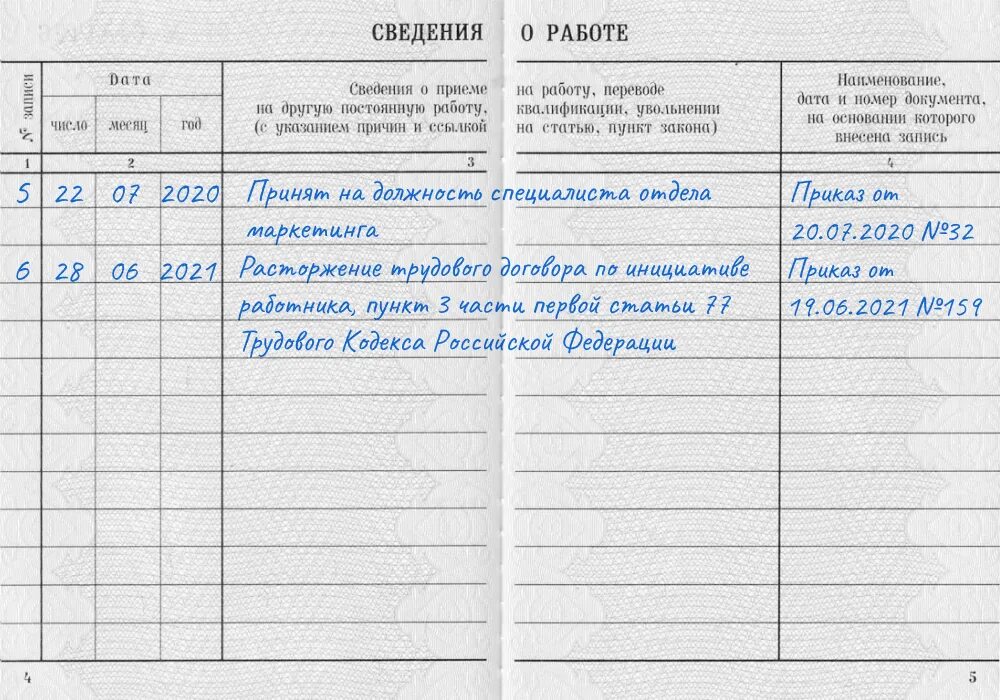 СВЕДЕНИЯ О РАБОТЕ
№ записи
Дата
число месяц год
Сведения о приеме на работу, переводе
на другую постоянную работу, квалификации, увольнении
(с указанием причин и ссылкой на статью, пункт закона)
Наименование,
дата и номер документа,
на основании которого
внесена запись
1 2 3 4
5 22 07 2020 Принят на должность специалиста отдела Приказ от
маркетинга 20.07.2020 №32
6 28 06 2021 Расторжение трудового договора по инициативе Приказ от
работника, пункт 3 части первой статьи 77 19.06.2021 №159
Трудового Кодекса Российской Федерации
4 5